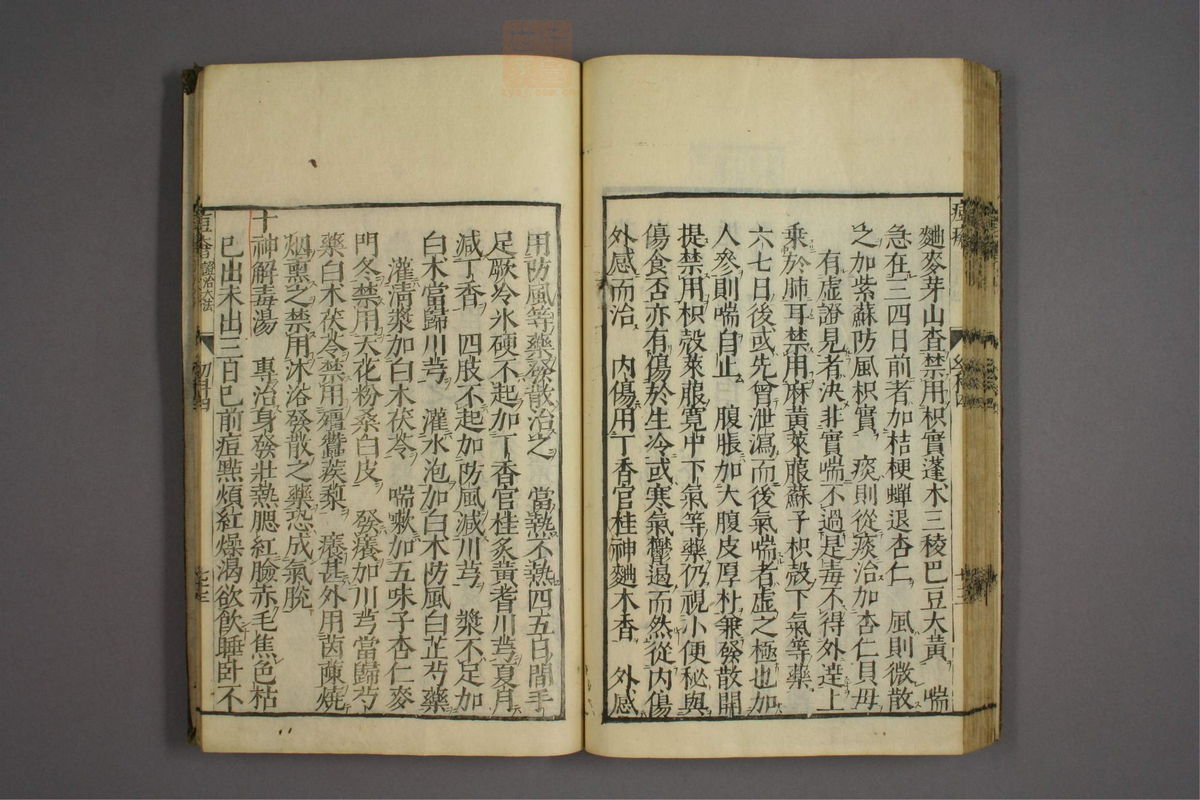 麯麥芽山査禁用枳實蓬朮三稜巴豆大黃　喘
急在三四日前者加桔梗蟬退杏仁　風則微散
之加紫蘇防風枳實　痰則從痰治加杏仁貝母
有虛證見者決非實喘不過是毒不得外達上
乘於肺耳禁用麻黃萊菔蘇子枳殼下氣等藥
六七日後或先曾泄瀉而後氣喘者虛之極也加
人參則喘自止　腹脹加大腹皮厚朴兼發散開
提禁用枳殼萊菔寬中下氣等藥仍視小便秘與
傷食否亦有傷於生冷或寒氣鬱遏而然從內傷
外感而治　內傷用丁香官桂神麯木香　外感
用防風等藥發散治之　當熱不熱四五日間手
足厥冷氷硬不起加丁香官桂炙黃耆川芎夏月
減丁香　四肢不起加防風減川芎　漿不足加
白朮當歸川芎　灌水泡加白朮防風白芷芍藥
灌清漿加白朮茯苓　喘嗽加五味子杏仁麥
門冬禁用天花粉桑白皮　發癢加川芎當歸芍
藥白朮茯苓禁用殭蠶蒺藜　癢甚外用茵蔯燒
烟熏之禁用沐浴發散之藥恐成氣脫
十神解毒湯　專治身發壯熱腮紅臉赤毛焦色枯
已出未出三日已前痘點煩紅燥渴欲飲睡臥不